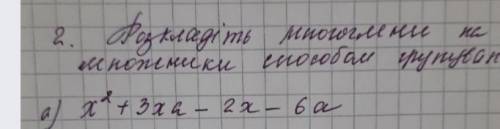 2. Розкладіть многочлени на
множники способом групуван
а) x² + 3xa - 2x - 6a